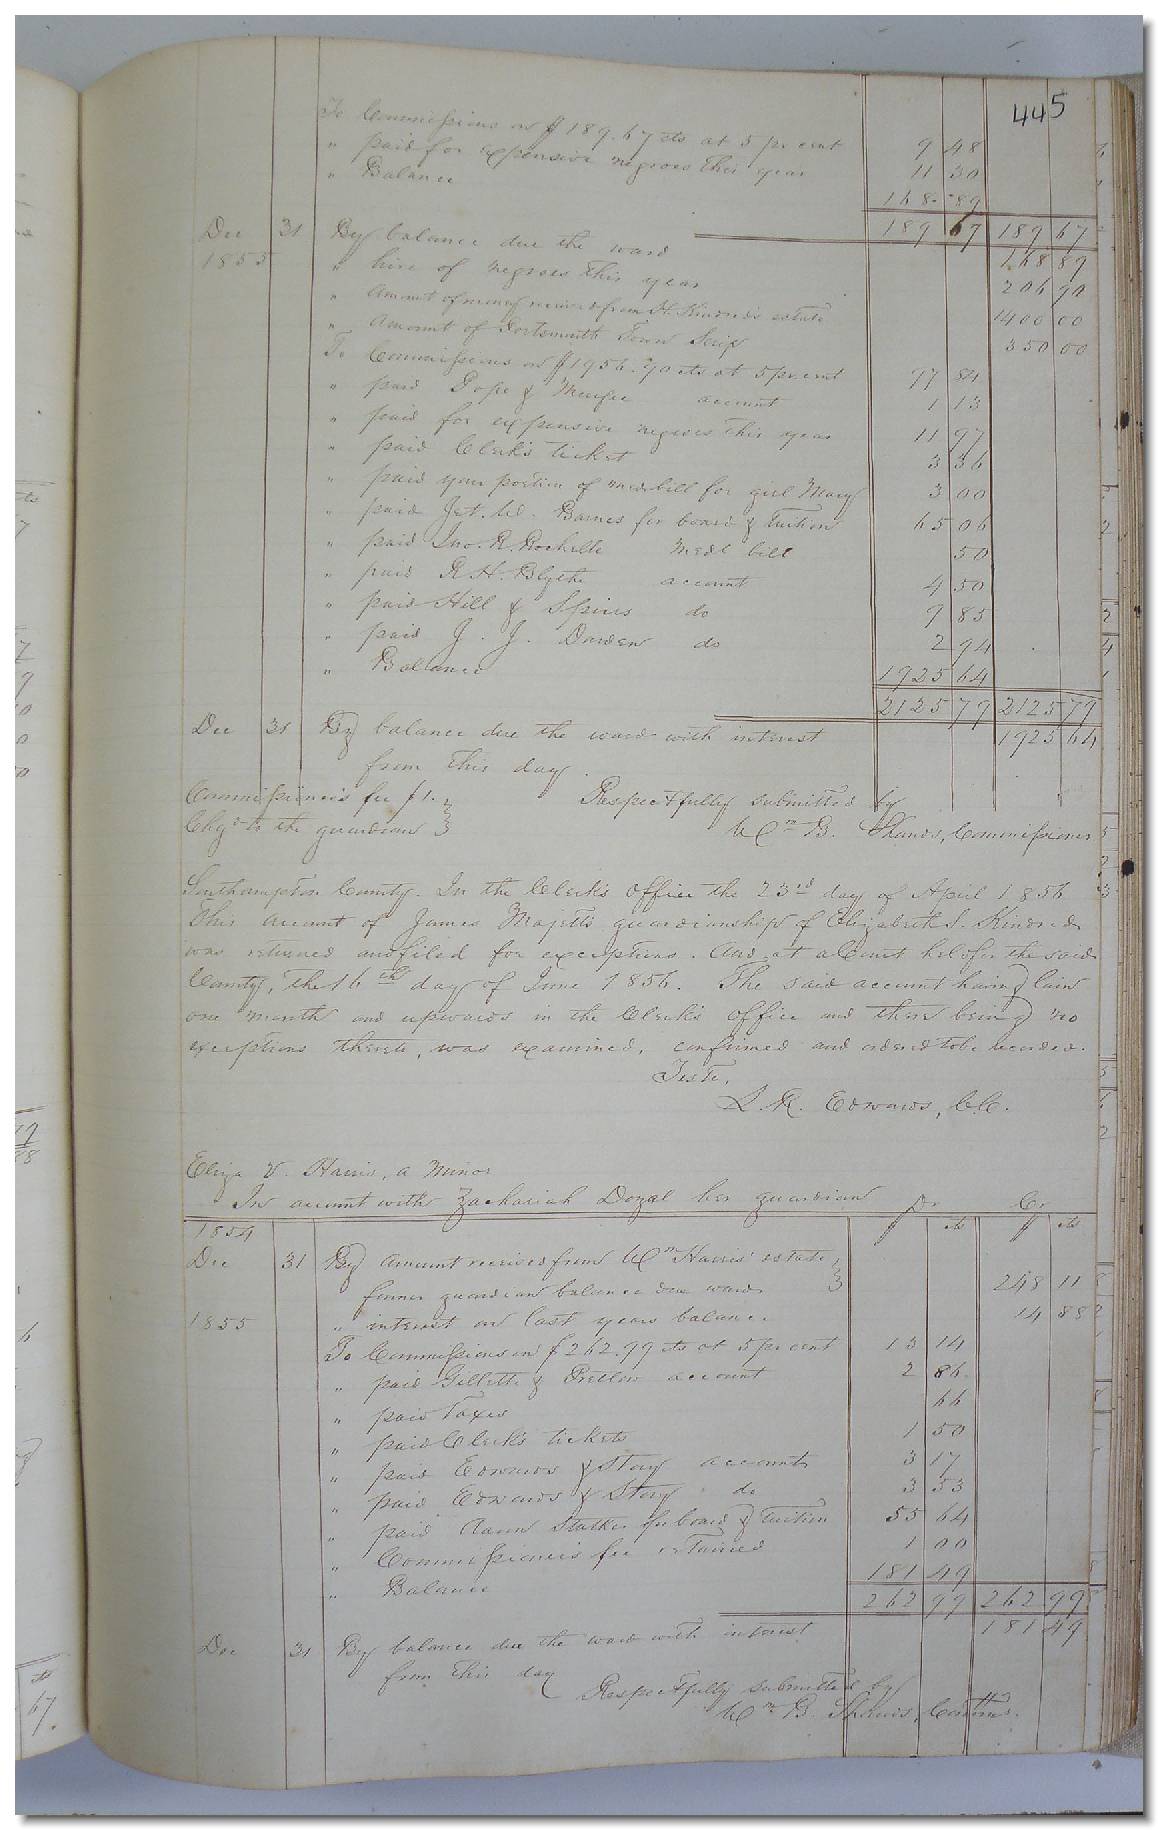 445
To Commissions on $189.67 cts at 5 pr cent 9 48
" paid for expensive negroes this year 11 30
" Balance 168 89
189 67 189 67
Dec 31 By balance due the ward 168 89
1855 " hire of negroes this year 206 90
" Amount of money received from H. Kindred's estate 1400 00
" Amount of Portsmouth Town Scrip 350 00
To Commissions on $1956.90 cts at 5 pr cent 97 84
" paid Pope & account 1 13
" paid for expensive negroes this year 11 97
" paid Clerk's ticket 3 36
" paid your portion of Med bill for girl Mary 3 00
" paid Barnes for board & tuition 65 06
" paid Jno. R. Rochelle Medl bill 50
" paid R. H. Blythe account 4 50
" paid Hill & Spiers do 9 85
" paid J. J. Darden do 2 94
" Balance 1925 64
2125 79 2125 79
Dec 31 By balance due the ward with interest 1925 64
from this day
Commissioner's fee $1.
Chgd to the guardian
Respectfully submitted by
Wm B. Shands, Commissioner
Southampton County. In the Clerk's Office the 23rd day of April 1856
This account of James Majett's guardianship of Elizabeth S. Kindred
was returned and filed for exceptions. And at a Court held for the said
County, the 16th day of June 1856. The said account having lain
one month and upwards in the Clerk's Office and there being no
exceptions thereto, was examined, confirmed and ordered to be recorded.
Teste,
L. R. Edwards, C.C.
Eliza V. Harris, a Minor
In account with Zachariah Doyal her guardian Dr. Cr.
1854 $ cts $ cts
Dec 31 By Amount received from Wm Harris' estate,
former guardian balance due ward 248 11
1855 " interest on last years balance 14 88
To Commissions on $262.99 cts at 5 pr cent 13 14
" paid Gillette & Pretlow account 2 86
" paid Taxes 66
" paid Clerk's tickets 1 50
" paid Edwards & Story account 3 17
" paid Edwards & Story do 3 53
" paid Aaron Stalker for board & tuition 55 64
" Commissioner's fee retained 1 00
" Balance 181 49
262 99 262 99
Dec 31 By balance due the ward with interest 181 49
from this day
Respectfully submitted by
Wm B. Shands, Commr.